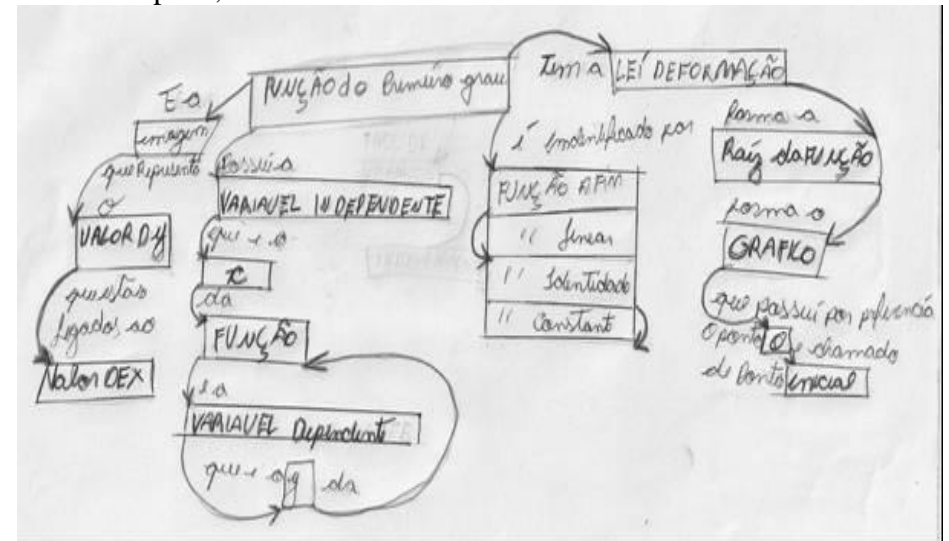 FUNÇÃO do Primeiro grau
Tem a LEÍ DEFORMAÇÃO
E a
imagem
que Representa
o
VALOR D y
que estão
ligados ao
Valor DEX
Possui a
VARIAVEL INDEPENDENTE
que e o
x
da
FUNÇÃO
e a
VARIAVEL Dependente
que e o y da
é indentificado por
FUNÇÃO AFIM
" linear
" Identidade
" Constant
forma a
Raíz da FUNÇÃO
forma o
GRAFICO
que possuí por
O ponto O e chamado
de Ponto inicial